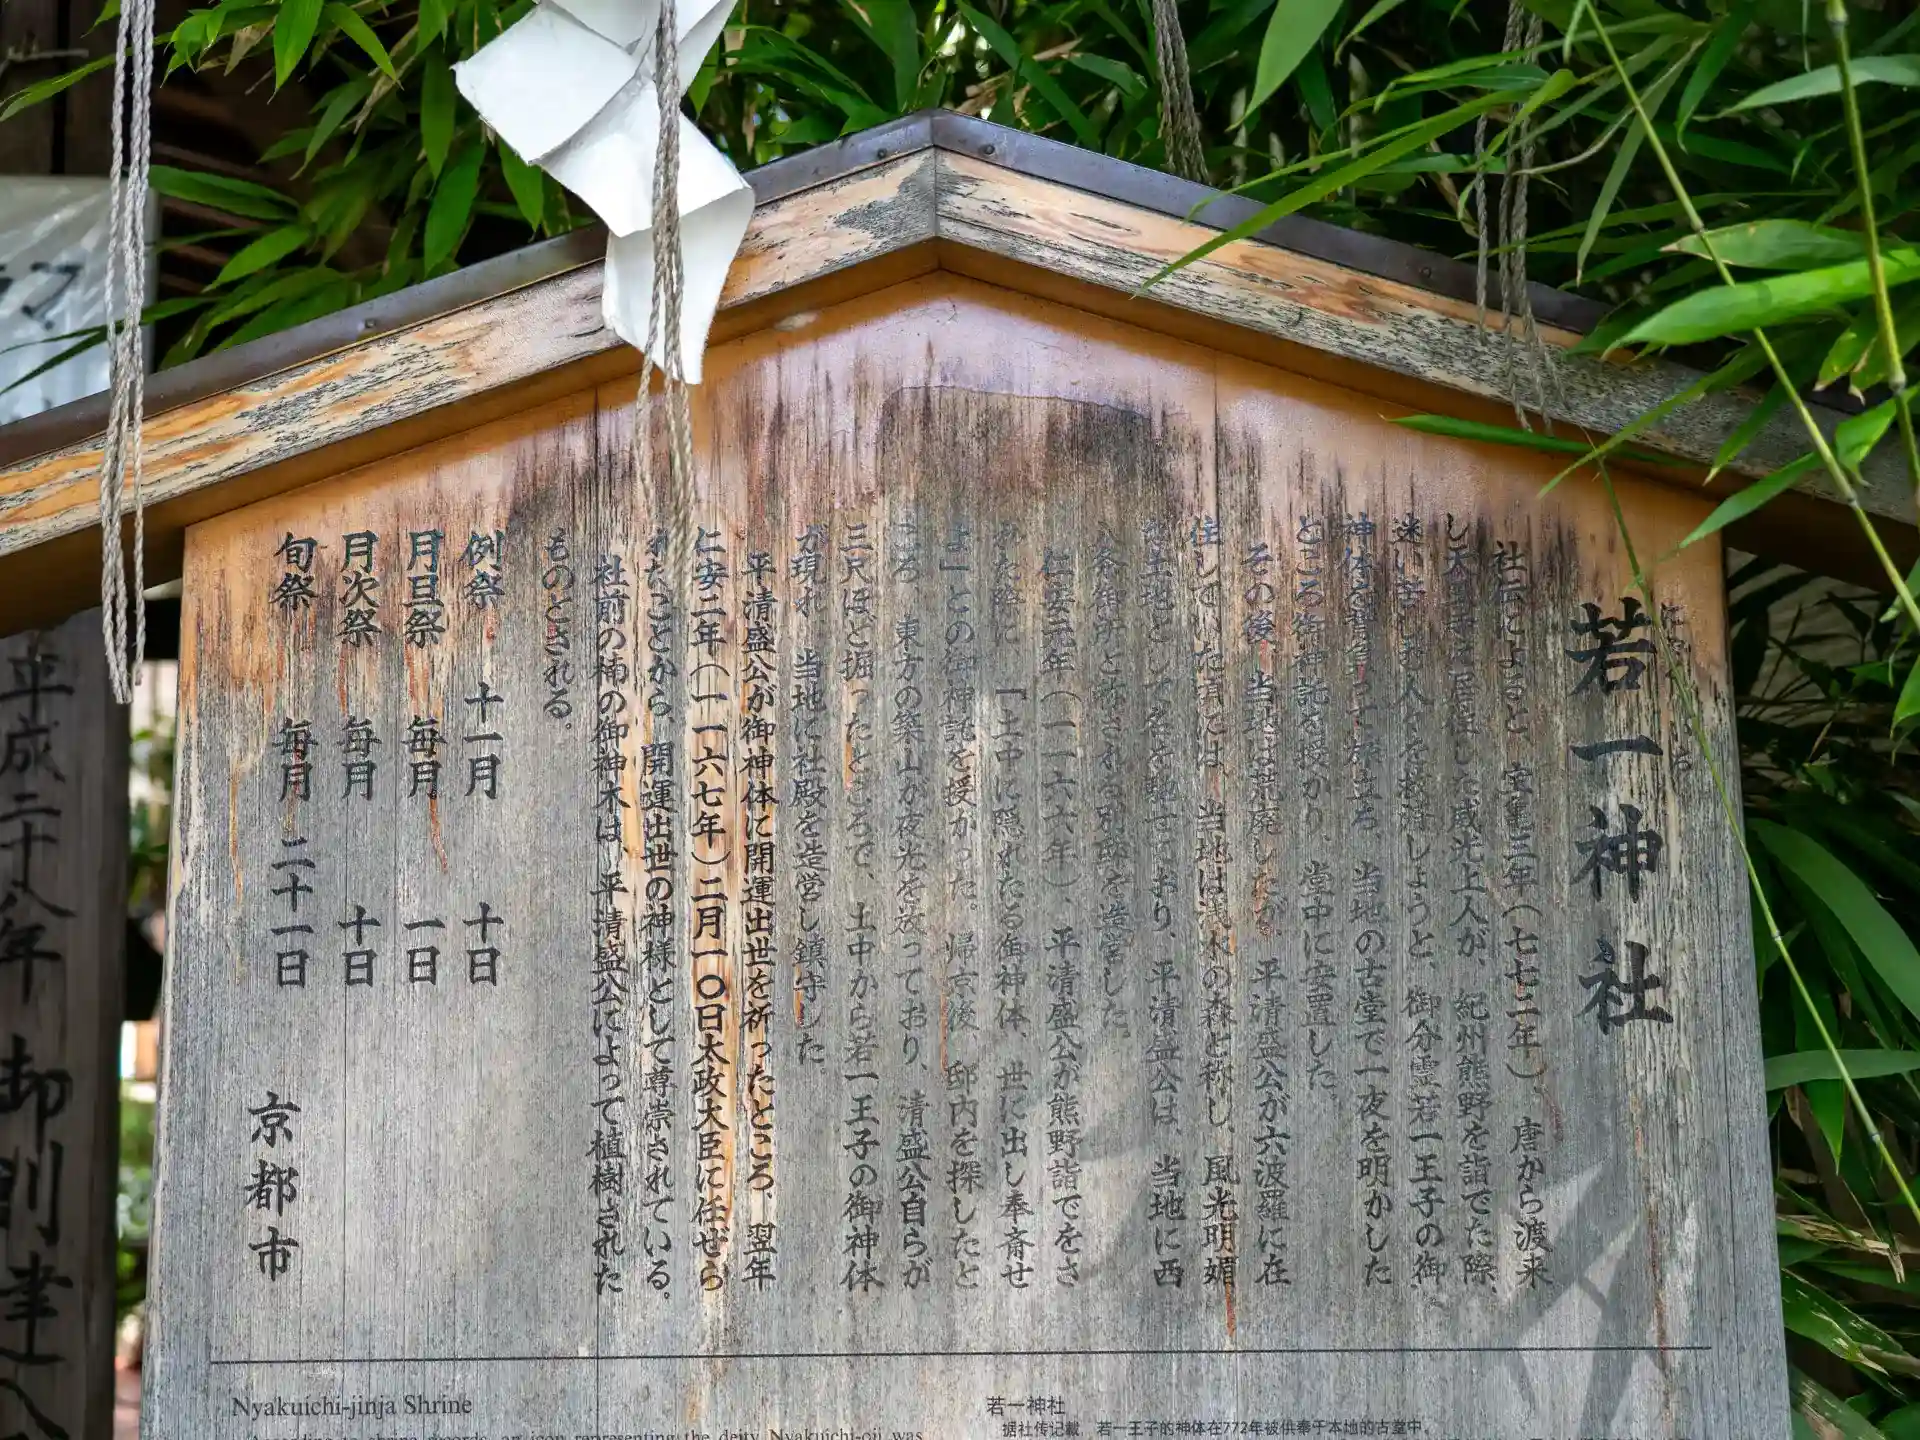 若一神社
社伝によると、宝亀三年(七七二年)、唐から渡来
し天王寺に居住した威光上人が、紀州熊野を詣でた際、
迷い苦しむ人々を救済しようと、御分霊若一王子の御
神体を背負って旅立ち、当地の古堂で一夜を明かした
ところ御神託を授かり、堂中に安置した。
その後、当地は荒廃したが、平清盛公が六波羅に在
住していた頃では、当地は浅水の森と称し、風光明媚
な土地として名を馳せており、平清盛公は、当地に西
八条御所と称される別邸を造営した。
仁安元年(一一六六年)、平清盛公が熊野詣でをさ
れた際に、「土中に隠れたる御神体、世に出し奉斎せ
よ」との御神託を授かった。帰京後、邸内を探したと
ころ、東方の築山が夜光を放っており、清盛公自らが
三尺ほど掘ったところで、土中から若一王子の御神体
が現れ、当地に社殿を造営し鎮守した。
平清盛公が御神体に開運出世を祈ったところ、翌年
仁安二年(一一六七年)二月一〇日太政大臣に任ぜら
れたことから、開運出世の神様として尊崇されている。
社前の楠の御神木は、平清盛公によって植樹された
ものとされる。
例祭 十一月 十日
月旦祭 毎月 一日
月次祭 毎月 十日
旬祭 毎月 二十一日
京都市
Nyakuichi-jinja Shrine
According to shrine records, an icon representing the deity Nyakuichi-oji was
若一神社
据社传记载，若一王子的神体在772年被供奉于本地的古堂中。
平成二十八年